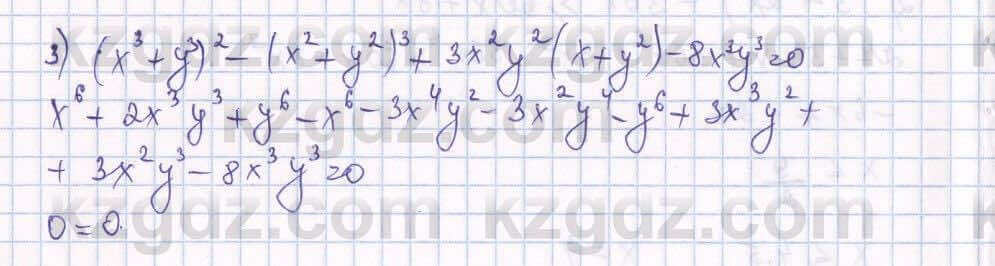 3) (x³+y³)² - (x²+y²)³ + 3x²y²(x+y²) - 8x³y³=0
x⁶ + 2x³y³ + y⁶ - x⁶ - 3x⁴y² - 3x²y⁴ - y⁶ + 3x³y² +
+ 3x²y³ - 8x³y³=0
0 = 0.
kzgdz.com kzgdz.com
kzgdz.com kzgdz.com